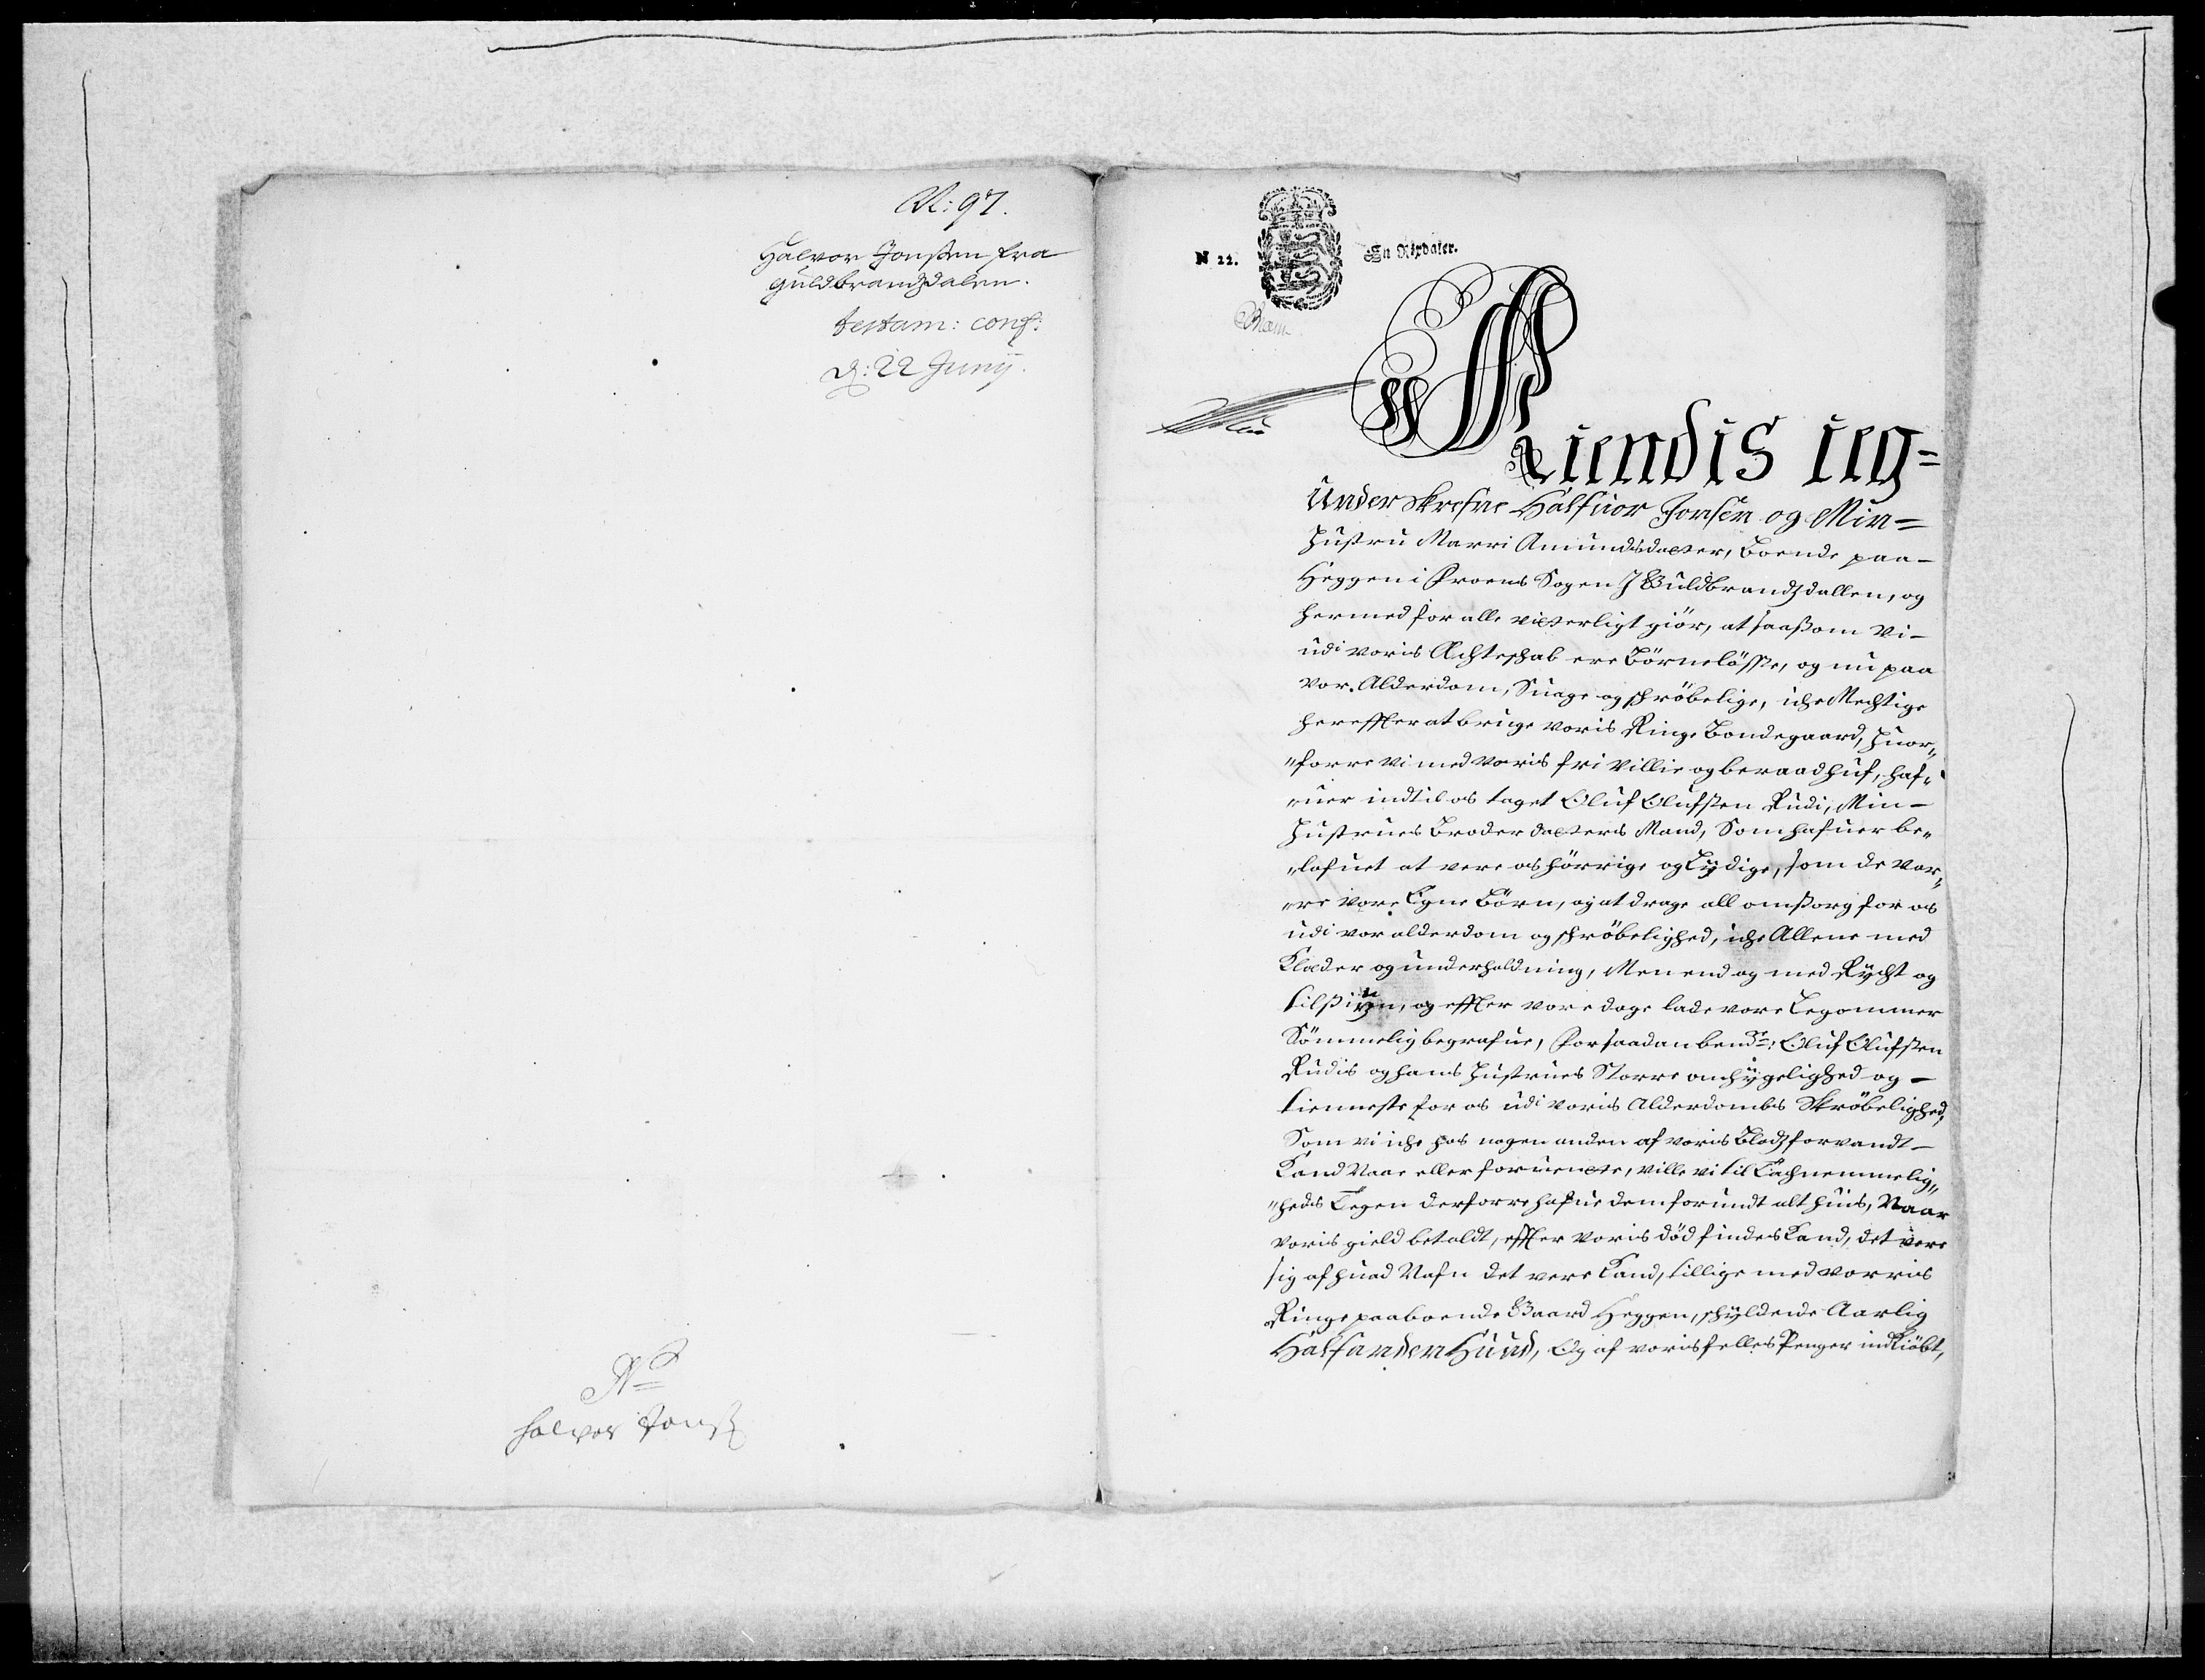 N: 97.
Halvor Jonssen fra
Guldbrandzdalen.
testam: conf:
d: 22 Junij.
No
halvor Jonss
N 22.
En Rixdaler.
Kiendis ieg=
Underskrefne Halfuor Jonsen og Min=
Hustru Marri Amundsdatter, Boende paa-
Heggen i Froens Sogen J Guldbrandzdallen, og
hermed for alle vitterligt giör, at saasom vi-
udi voris Ächteskab ere Börnelösse, og nu paa
vor. Alderdom, Suage og skröbelige, iche Mechtige
herefter at bruge voris Ringe Bondegaard, huor„
„forre vi med voris fri villie og beraad huf, haf„
„uer indtil os taget Oluf Olufsen Rudi, Min-
Hustrues Broder datters Mand, Som hafuer be„
„lofuet at vere os hörrige og Lÿdige, som de var„
„re vore Egne Börn, og at drage all omsorg for os
udi vor alderdom og skröbelighed, iche Allene med
Klæder og underholdning, Men end og med Rÿcht og
tilsiun, og efter vore dage lade vore Legommer
Sömmelig begrafue, For saadan bemte: Oluf Olufsen
Rudis og hans Hustrues Storre omhÿgelighed og-
tienneste for os udi voris Alderdombs Skröbelighed,
Som vi iche hos nogen anden af voris Blodzforvandt-
Kand Naae eller foruente, ville vi til Tachnemmelig„
„heds Tegen derforre hafue dem forundt alt huis, Naar
voris gield betaldt, efter voris död findes Kand, det vere
sig af huad Nafn det vere Kand, tillige med vorris
Ringe paaboende Gaard Heggen, skÿldende Aarlig
Halfanden Hund, Og af voris felles Penger indKiöbt,